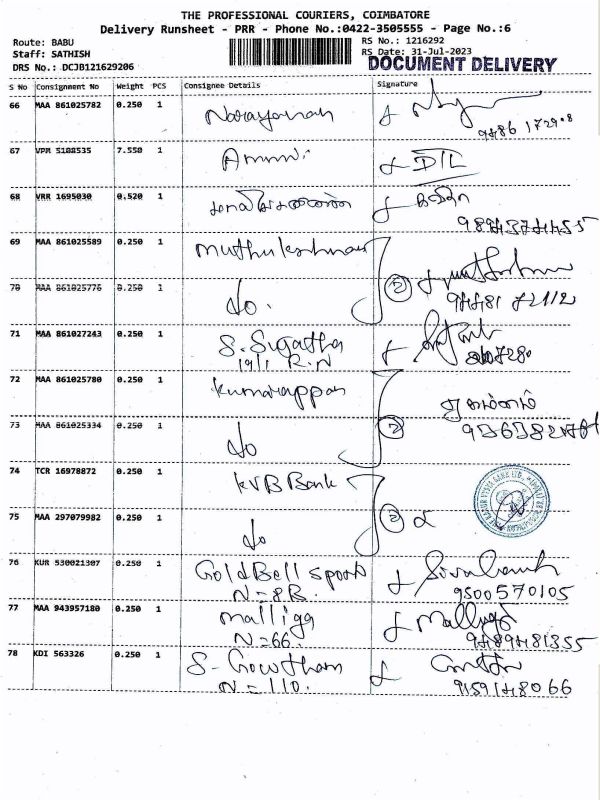 THE PROFESSIONAL COURIERS, COIMBATORE
Delivery Runsheet - PRR - Phone No.:0422-3505555 - Page No.:6
Route: BABU
Staff: SATHISH
DRS No.: DCJB121629206
RS No.: 1216292
RS Date: 31-Jul-2023
DOCUMENT DELIVERY
S No Consignment No Weight PCS Consignee Details Signature
66 MAA 861025782 0.250 1 Narayanan
67 VPM 5108535 7.550 1 Ammni DTL
68 VRR 1695030 0.520 1
69 MAA 861025589 0.250 1 muthukrishnan
70 MAA 861025776 0.250 1 do. 2
71 MAA 861027243 0.250 1 S. Sugatha
19/1 R.N
72 MAA 861025780 0.250 1 kumarappan
73 MAA 861025334 0.250 1 do 2
74 TCR 16978872 0.250 1 KVB Bank
75 MAA 297079982 0.250 1 do 2
76 KUR 530021307 0.250 1 Gold Bell sports
N=8B. 9500570105
77 MAA 943957180 0.250 1 malliga
N=66. 9489481355
78 KDI 563326 0.250 1 S. Gowtham
N=110. 9159148066